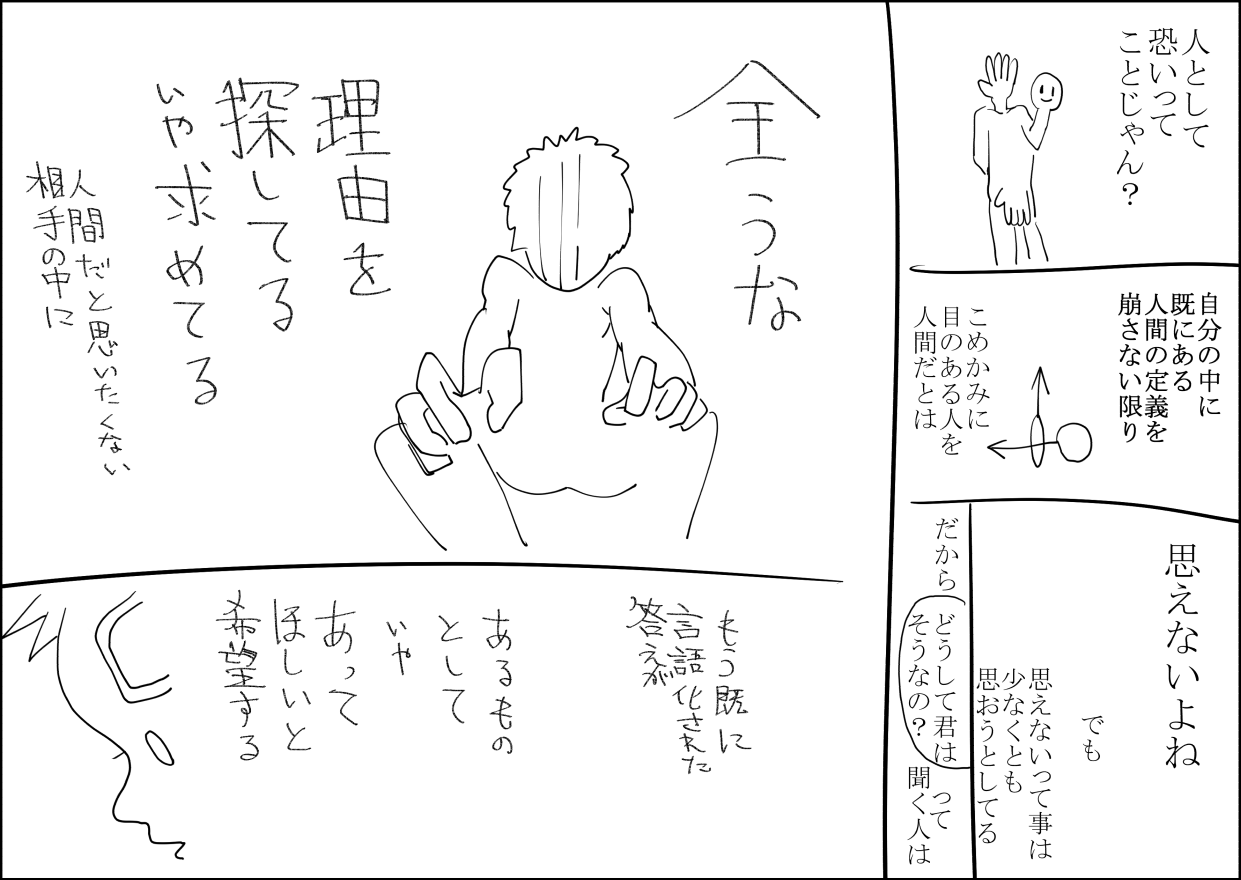 人として
恐いって
ことじゃん？
自分の中に
既にある
人間の定義を
崩さない限り
こめかみに
目のある人を
人間だとは
思えないよね
でも
思えないって事は
少なくとも
思おうとしてる
だから
どうして君は
そうなの？
って
聞く人は
全うな
理由を
探してる
いや求めてる
人間だと思いたくない
相手の中に
もう既に
言語化された
答えが
あるもの
として
いや
あって
ほしいと
希望する